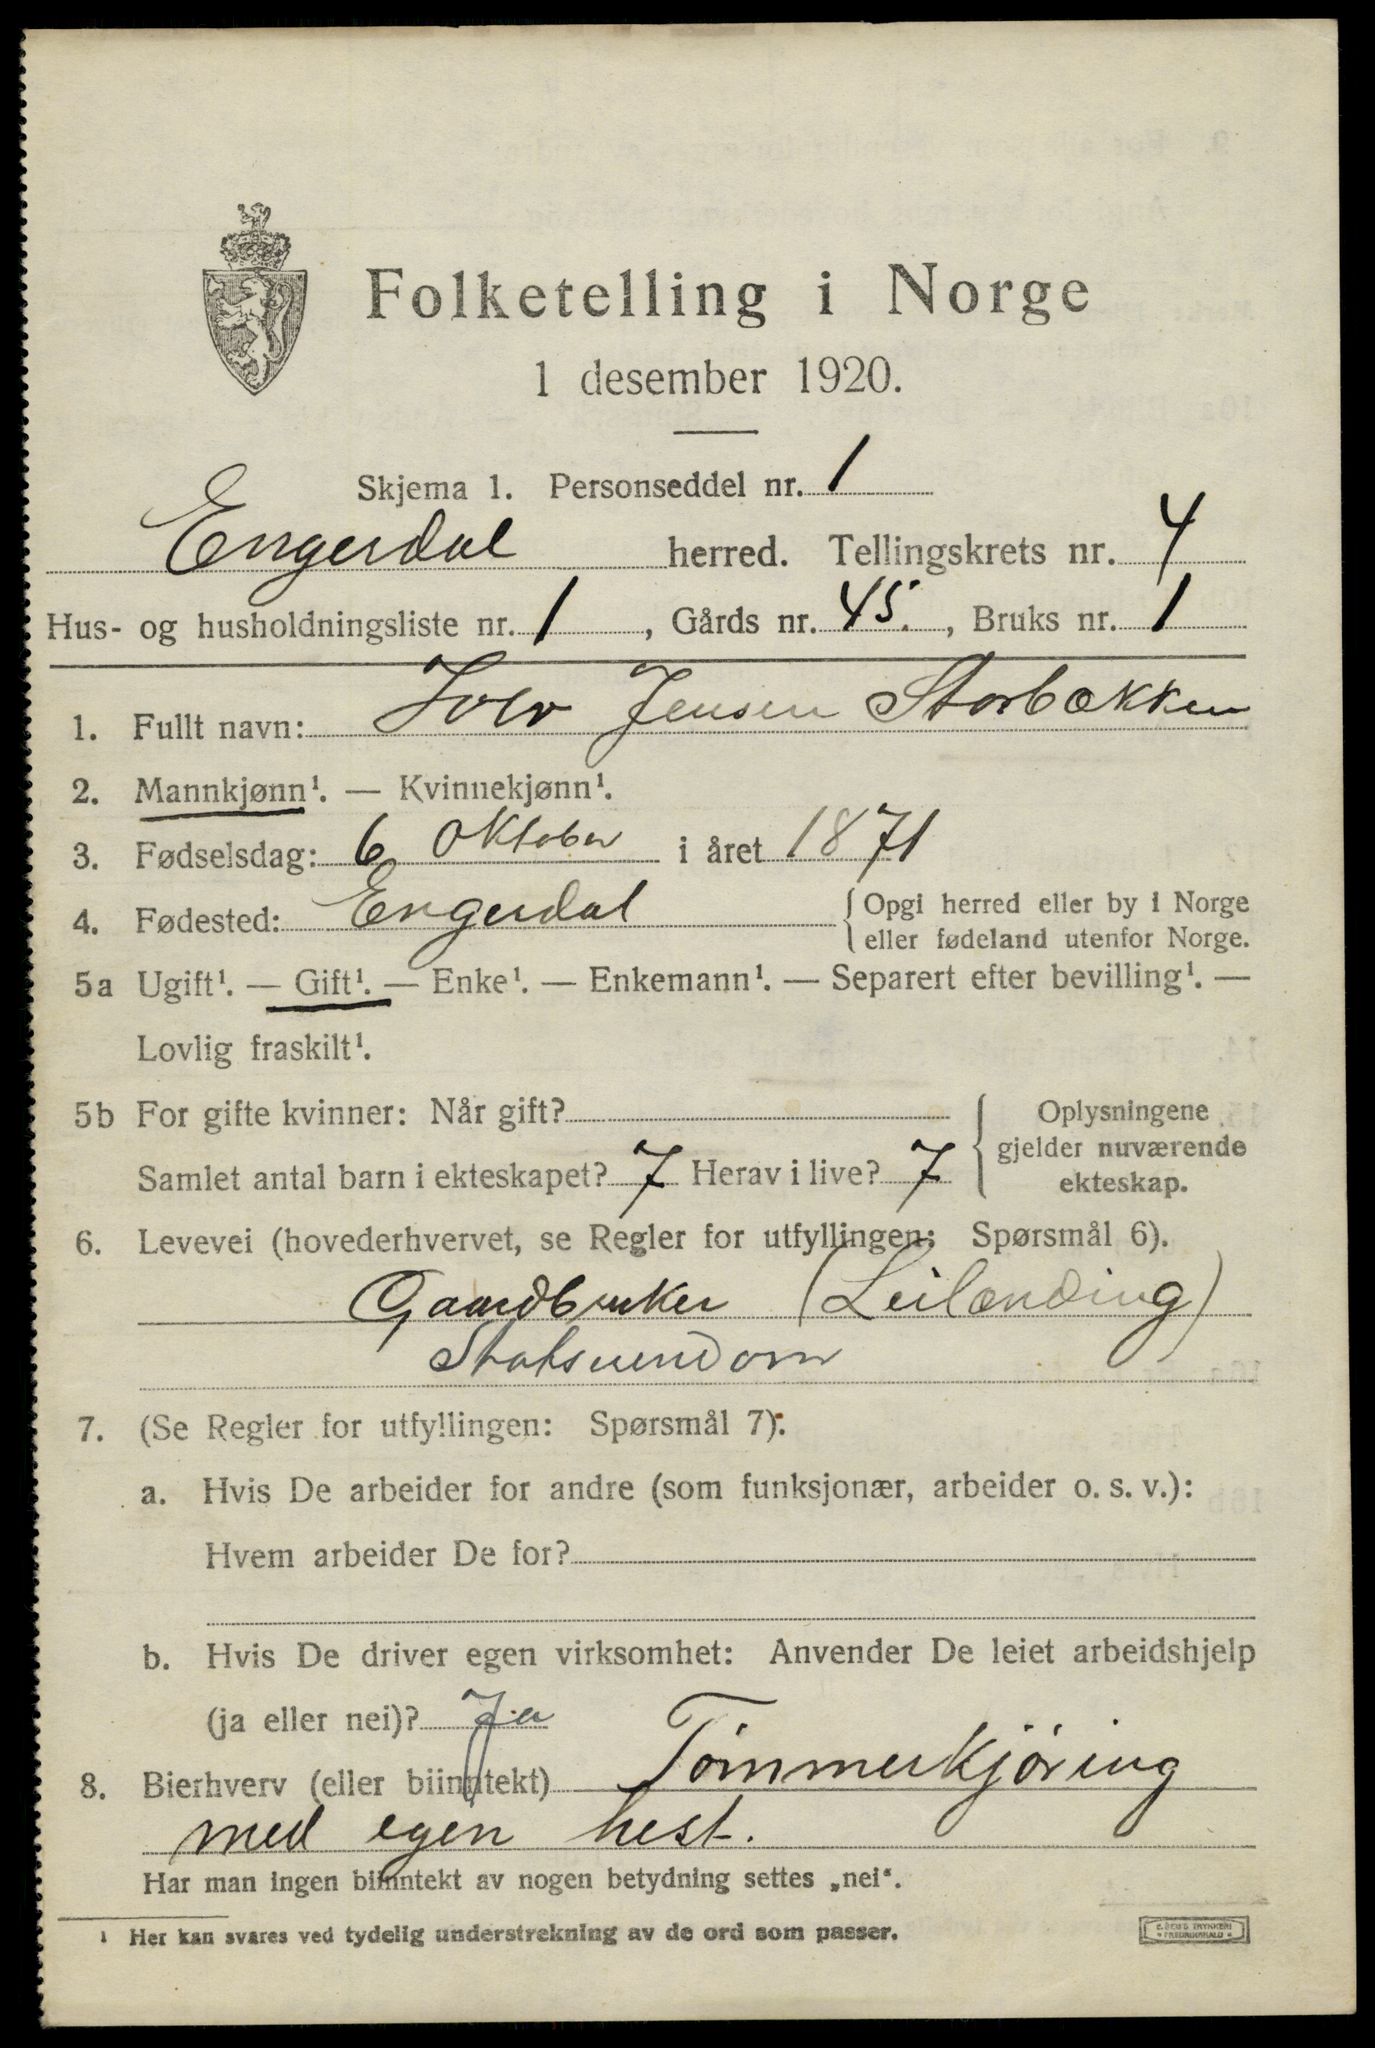 Folketelling i Norge
1 desember 1920.
Skjema 1. Personseddel nr. 1
Engerdal herred. Tellingskrets nr. 4
Hus- og husholdningsliste nr. 1, Gårds nr. 45., Bruks nr. 1
1. Fullt navn: Jensen Storbækken
2. Mannkjønn¹. — Kvinnekjønn¹.
3. Fødselsdag: 6 Oktober i året 1871
4. Fødested: Engerdal { Opgi herred eller by i Norge
eller fødeland utenfor Norge.
5a Ugift¹. — Gift¹. — Enke¹. — Enkemann¹. — Separert efter bevilling¹. —
Lovlig fraskilt¹.
5b For gifte kvinner: Når gift? { Oplysningene
gjelder nuværende
Samlet antal barn i ekteskapet? 7 Herav i live? 7 ekteskap.
6. Levevei (hovederhvervet, se Regler for utfyllingen: Spørsmål 6).
Gaardbruker (Leilending)
7. (Se Regler for utfyllingen: Spørsmål 7):
a. Hvis De arbeider for andre (som funksjonær, arbeider o. s. v.):
Hvem arbeider De for?
b. Hvis De driver egen virksomhet: Anvender De leiet arbeidshjelp
(ja eller nei)? Ja
8. Bierhverv (eller biinntekt) Tömmerkjöring
med egen hest.
Har man ingen biinntekt av nogen betydning settes „nei“.
¹ Her kan svares ved tydelig understrekning av de ord som passer.